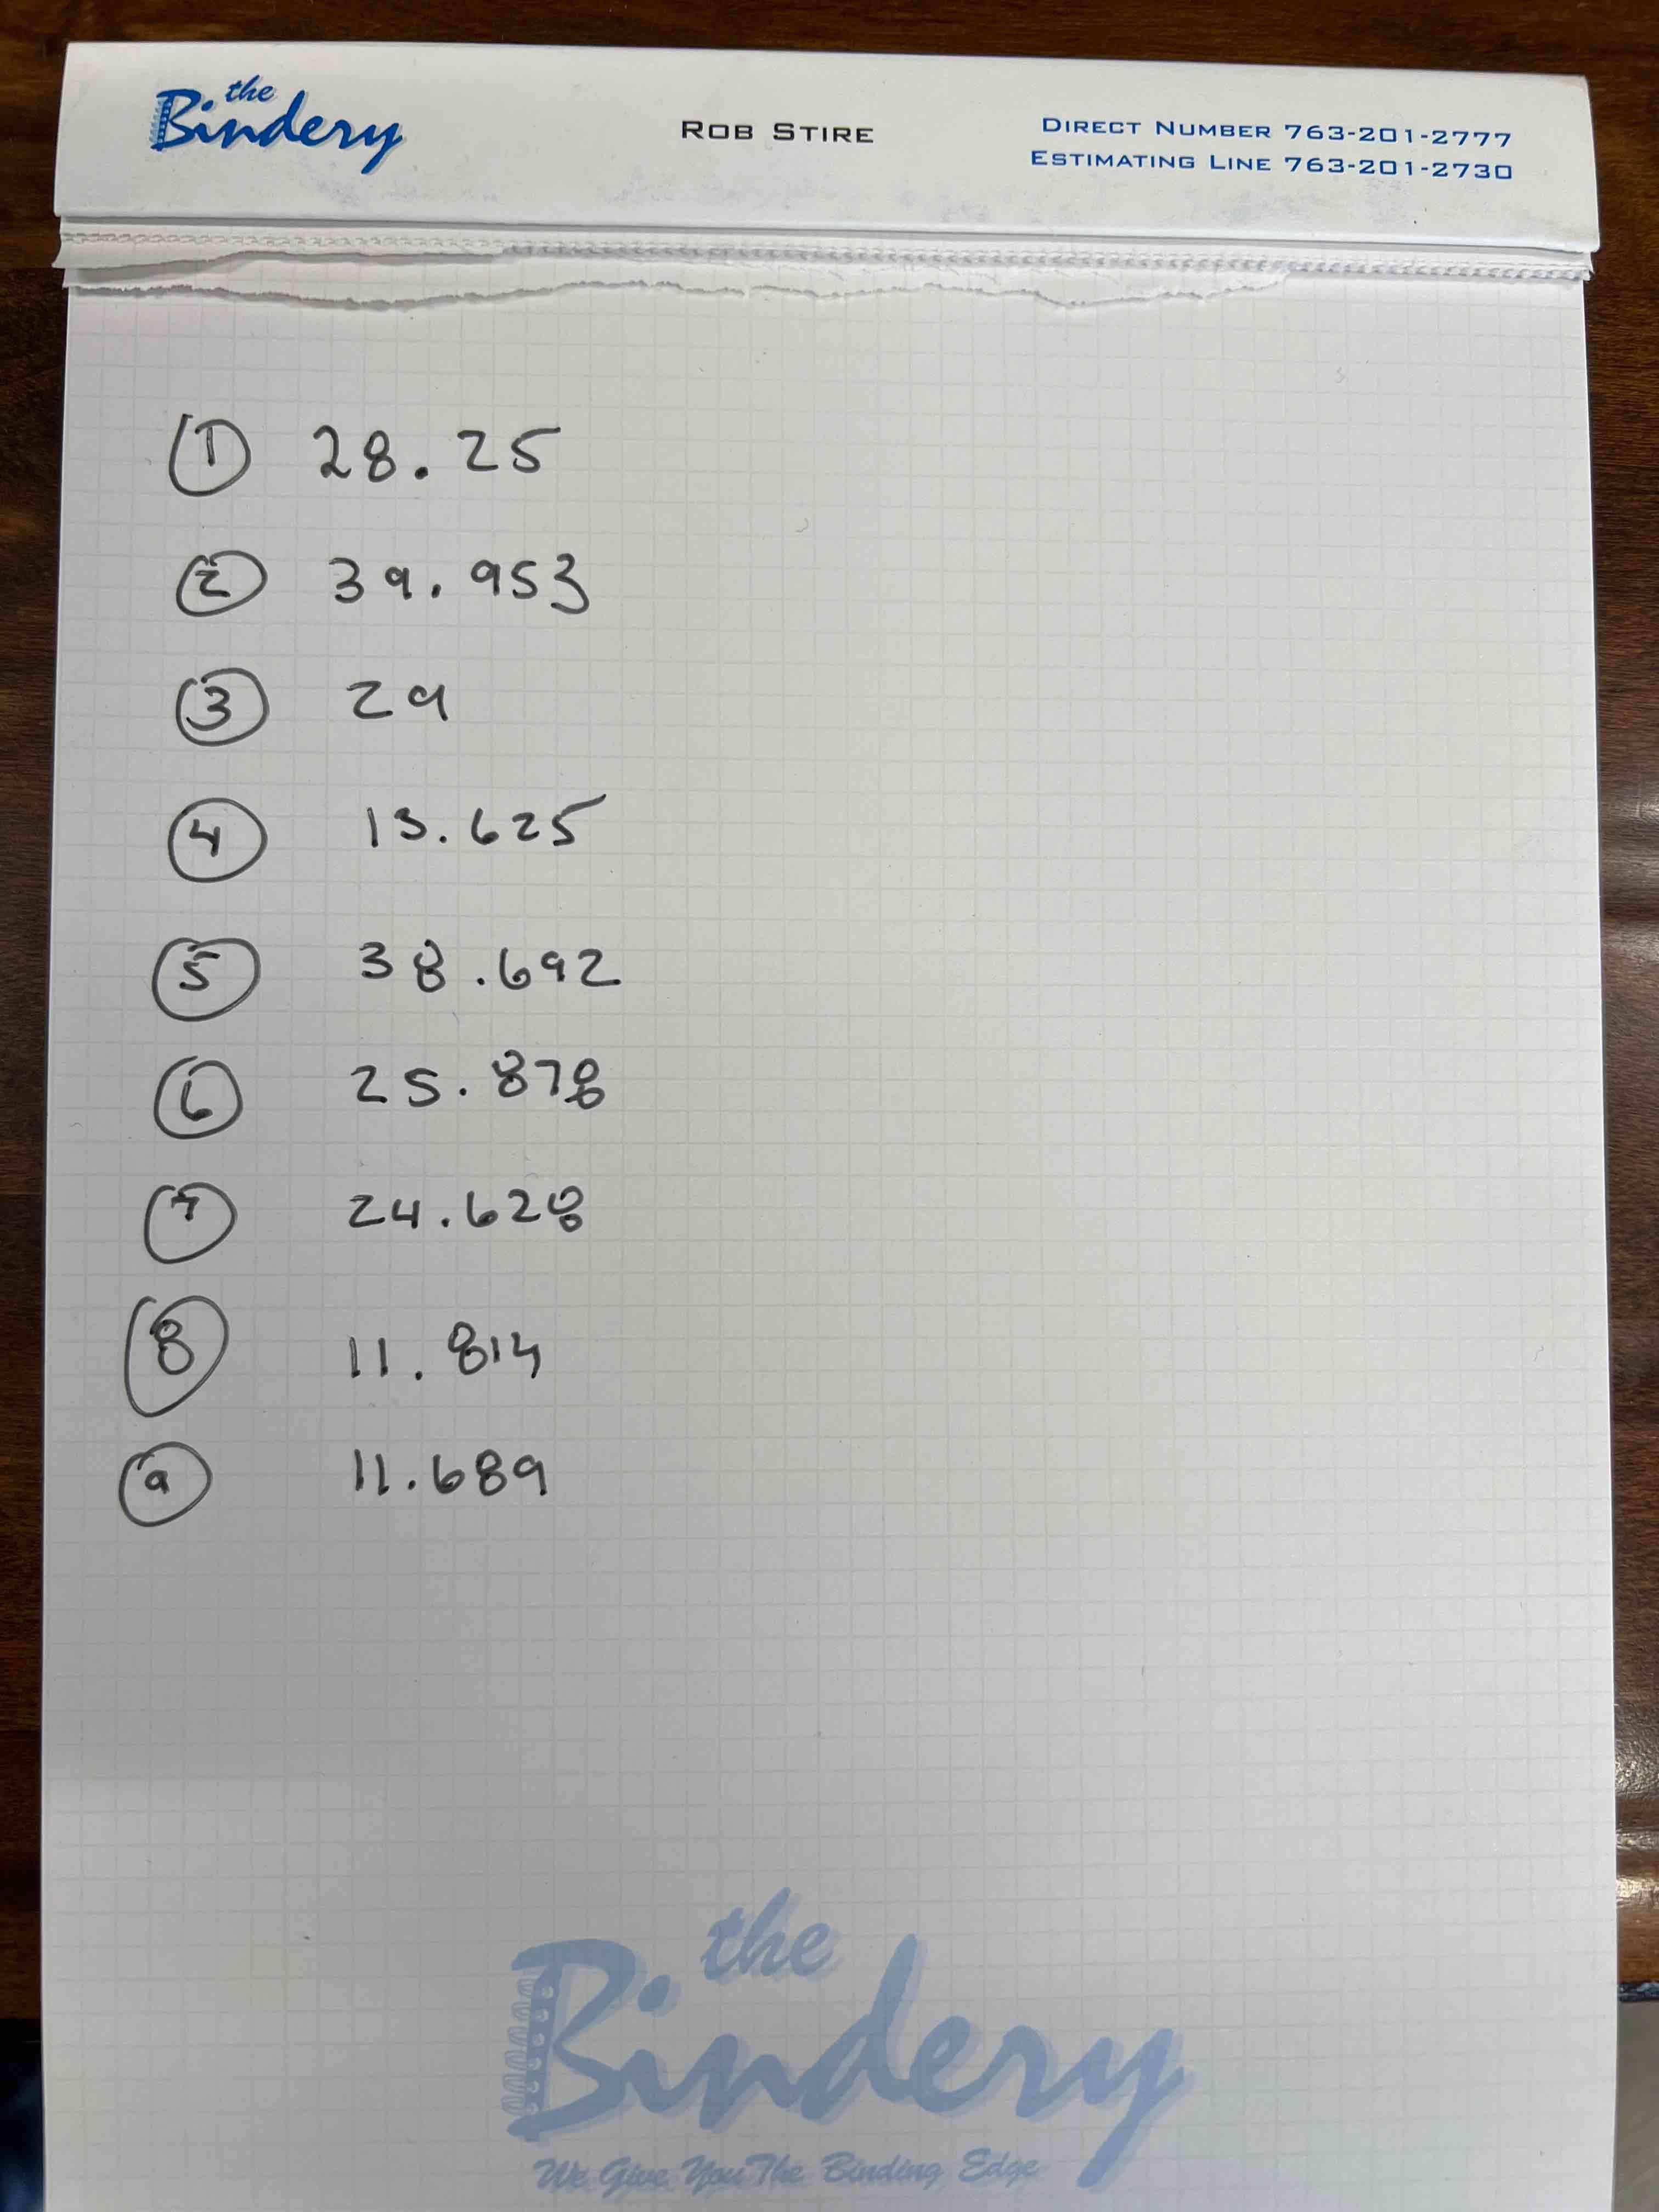 the
Bindery
ROB STIRE
DIRECT NUMBER 763-201-2777
ESTIMATING LINE 763-201-2730
1 28.25
2 39.953
3 29
4 13.625
5 38.692
6 25.878
7 24.628
8 11.814
9 11.689
the
Bindery
We Give You The Binding Edge